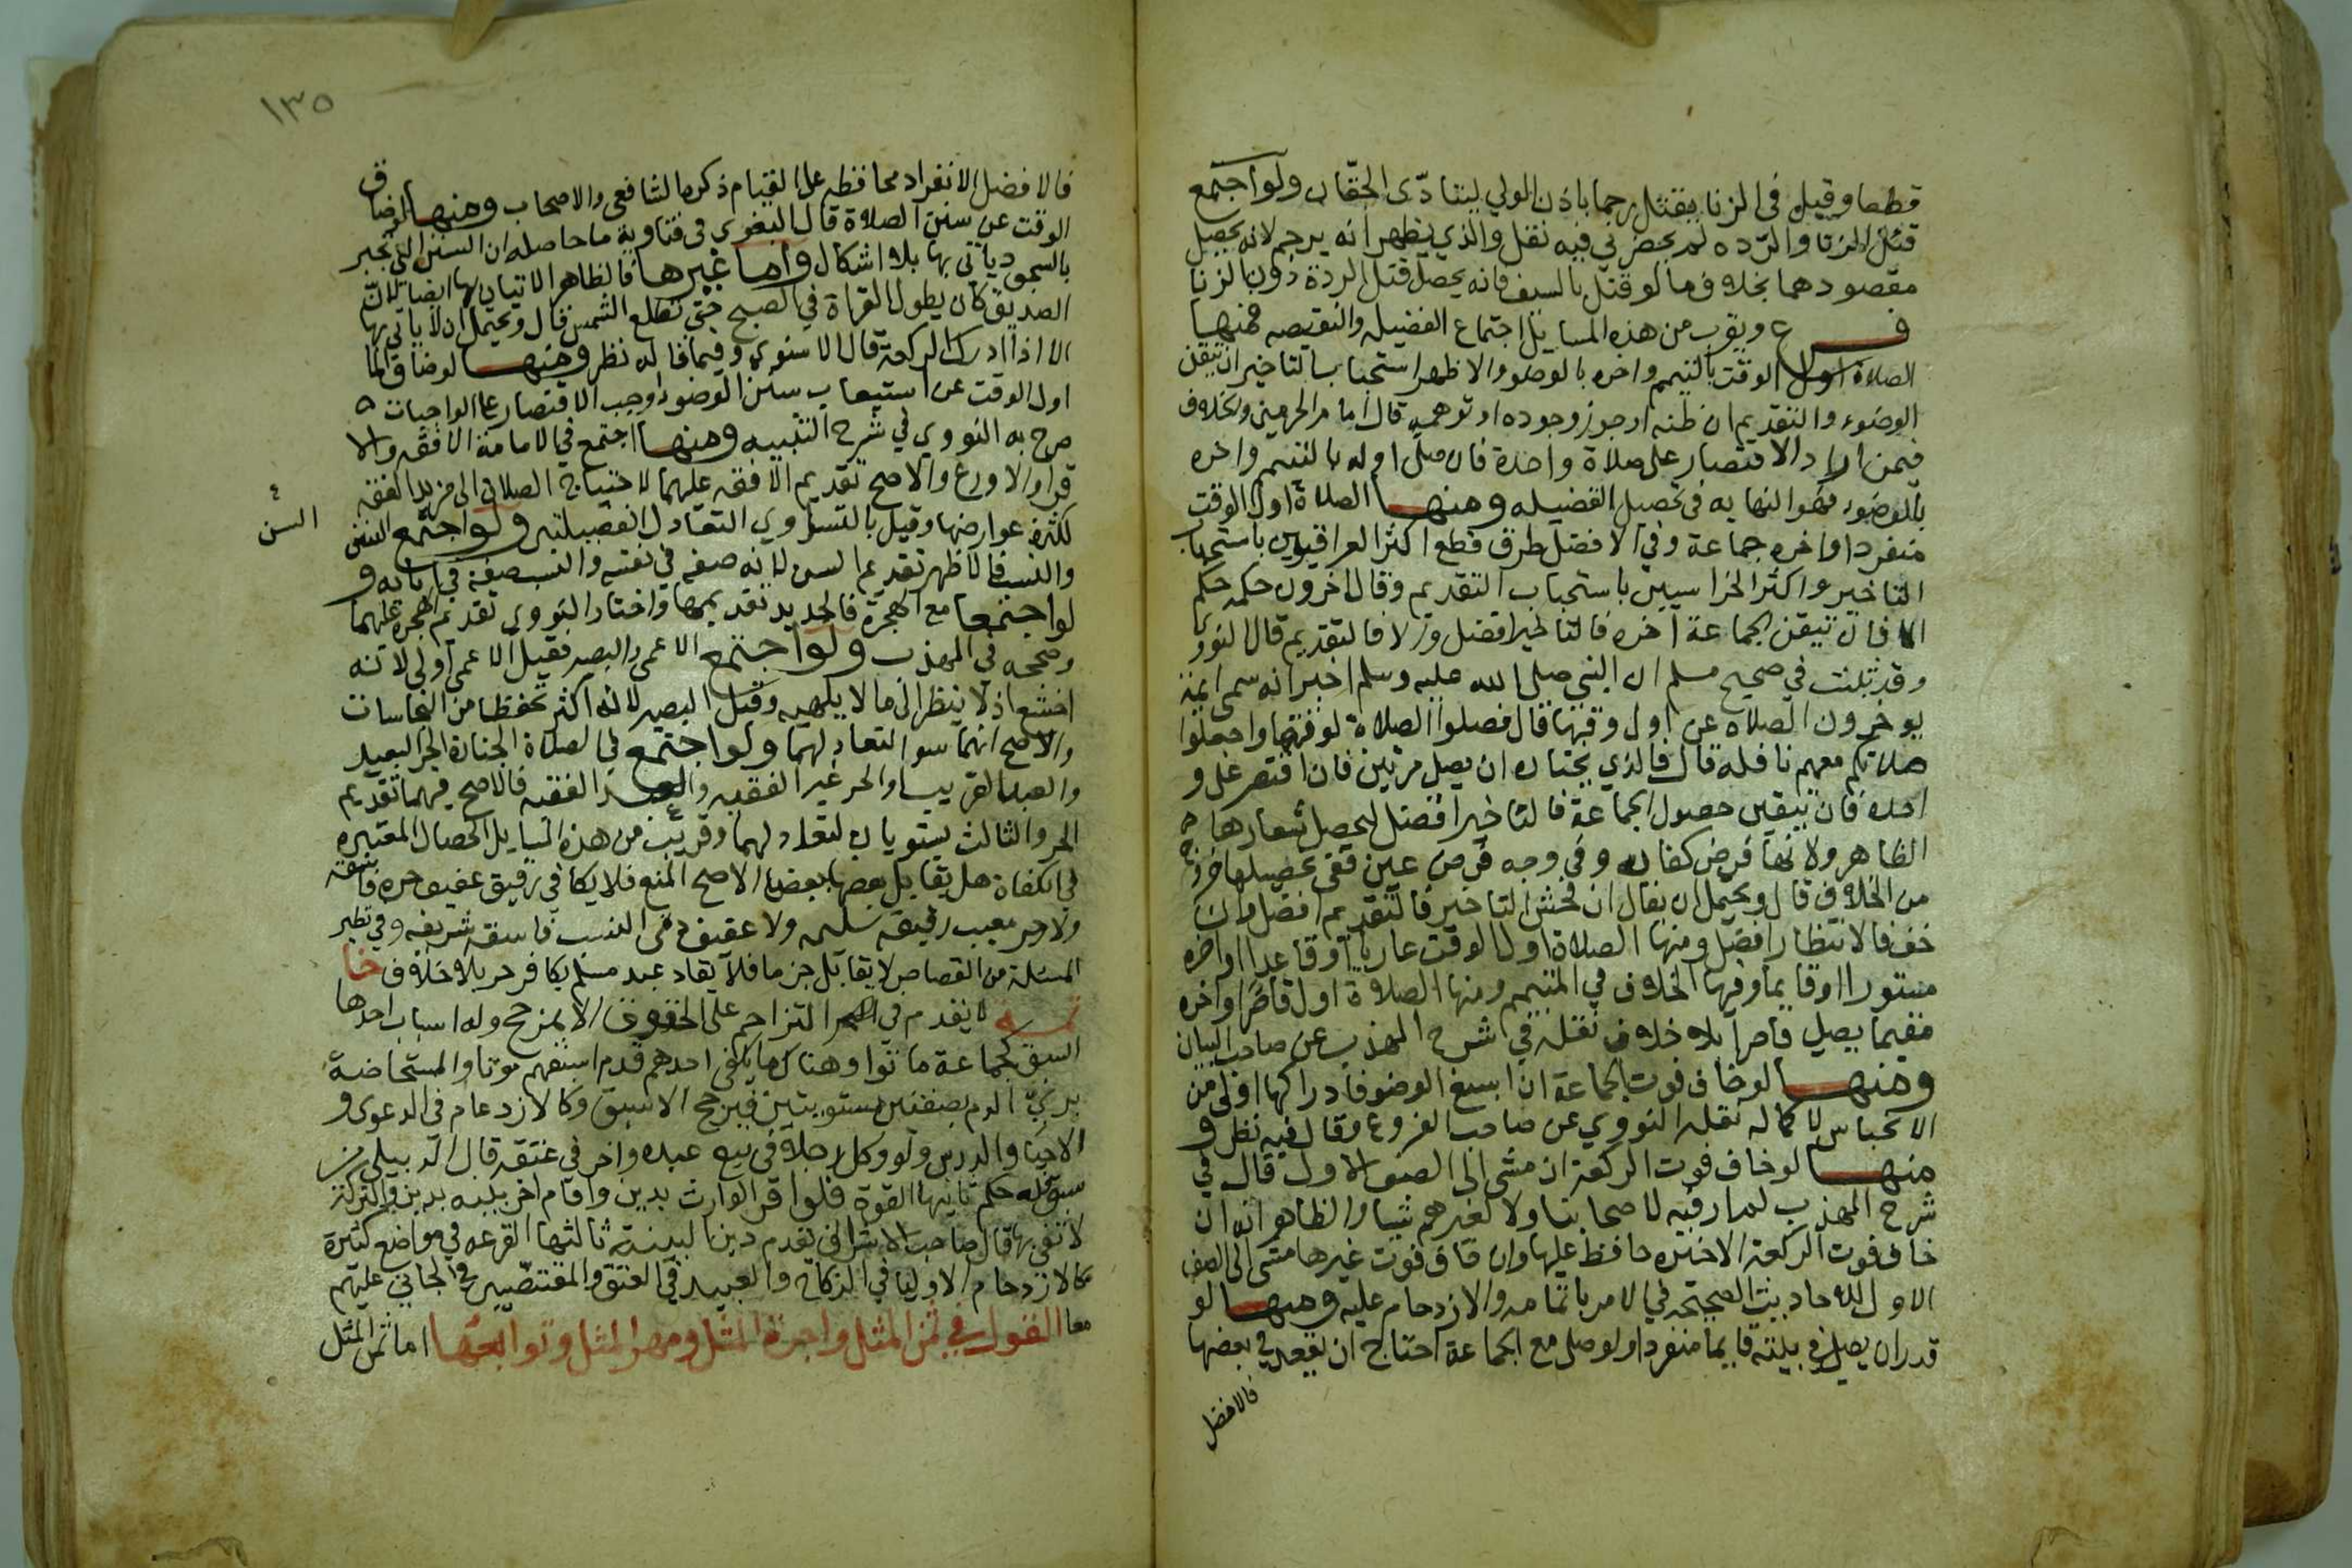 قطعا وقيل في الزنا يقتل رجما باذن الولي ليتادى الحقان ولو اجتمع
قتل الزنا والردة لم يحضرني فيه نقل والذي يظهر انه يرجم لانه يحصل
مقصودهما بخلاف ما لو قتل بالسيف فانه يحصل قتل الردة دون الزنا
فرع ويقرب من هذه المسايل اجتماع الفضيله والنقيصه فمنها
الصلاة اول الوقت بالتيمم واخره بالوضو والاظهر استحباب التاخير ان تيقن
الوضوء والتقديم ان ظنه او جوز وجوده او توهمه قال امام الحرمين والخلاف
فيمن اراد الاقتصار على صلاة واحدة فان صلى اوله بالتيمم واخره
بالوضو فهو النهايه في تحصيل الفضيله ومنها الصلاة اول الوقت
منفردا واخره جماعة وفي الافضل طرق قطع اكثر العراقيين باستحباب
التاخير واكثر الخراسيين باستحباب التقديم وقال اخرون حكمه حكم
الما فان تيقن الجماعة اخره فالتاخير افضل والا فالتقديم قال النووي
وقد ثبت في صحيح مسلم ان النبي صلى الله عليه وسلم اخبر انه سمى ايمة
يوخرون الصلاه عن اول وقتها قال فصلوا الصلاة لوقتها واجعلوا
صلاتكم معهم نافله قال فالذي يختاره ان يصلي مرتين فان اقتصر على و
احده فان تيقن حصول الجماعة فالتاخير افضل لتحصل شعارها
الظاهر ولانها فرض كفايه وفي وجه فرض عين ففي تحصيلها خروج
من الخلاف قال ويحتمل ان يقال ان فحش التاخير فالتقديم افضل وان
خف فالانتظار افضل ومنها الصلاة اول الوقت عاريا او قاعدا او اخره
مستورا او قايما وفيها الخلاف في المتيمم ومنها الصلاة اول قاصرا واخره
مقيما يصلي قاصرا بلا خلاف نقله في شرح المهذب عن صاحب البيان
ومنها لو خاف فوت الجماعة ان اسبغ الوضو فادراكها اولى من
الانحباس لاكماله نقله النووي عن صاحب الفروع وقال فيه نظر و
منها لو خاف فوت الركعة ان مشى الى الصف الاول قال في
شرح المهذب لم ار فيه لاصحابنا ولا لغيرهم شيا والظاهر انه ان
خاف فوت الركعة الاخيره حافظ عليها وان خاف فوت غيرها مشى الى الصف
الاول للاحاديث الصحيحة في الامر باتمامه والازدحام عليه ومنها لو
قدر ان يصلي في بيته قايما منفردا ولو صلى مع الجماعة احتاج ان يقعد في بعضها
فالافضل
١٣٥
فالافضل الانفراد محافظه على القيام ذكره الشافعي والاصحاب ومنها لو ضاق
الوقت عن سنن الصلاة قال البغوي في فتاويه ما حاصله ان السنن التي تجبر
بالسجود ياتي بها بلا اشكال واما غيرها فالظاهر الاتيان بها ايضا لان
الصديق كان يطول القراة في الصبح حتى تطلع الشمس قال ويحتمل ان لا ياتي بها
الا اذا ادرك الركعة قال الاسنوي وفيما قاله نظر ومنها لو ضاق الما
او الوقت عن استيعاب سنن الوضو وجب الاقتصار على الواجبات
صرح به النووي في شرح التنبيه ومنها اجتمع في الامامة الافقه والا
قرا والاورع والاصح تقديم الافقه عليهما لاحتياج الصلاة الى مزيد الفقه
لكثرة عوارضها وقيل بالتساوي التعادل الفضيلتين ولو اجتمع السن
السن
والنسب فالاظهر تقديم السن لانه صفه في نفسه والنسب صفة في ابايه و
لو اجتمعا مع الهجرة فالجديد تقديمهما واختار النووي تقديم الهجرة عليهما
وصححه في المهذب ولو اجتمع الاعمى والبصير فقيل الاعمى اولى لانه
اخشع اذ لا ينظر الى ما لا يلهيه وقيل البصير لانه اكثر تحفظا من النجاسات
والاصح انهما سوا لتعادلهما ولو اجتمع في الصلاة الجنازة الحر البعيد
والعبد القريب او الحر غير الفقيه والعبد الفقيه فالاصح فيهما تقديم
الحر والثالث يستويان لتعادلهما وقريب من هذه المسايل الخصال المعتبره
في الكفاة هل يقابل بعضها ببعض الاصح المنع فلا يكافي رقيق عفيف حره فاسقه
ولا حر معيب رقيقه سليمه ولا عفيف دني النسب فاسقه شريفه وفي نظير
المسئلة من القصاص لا يقابل جزما فلا يقاد عبد مسلم بكافر حر بلا خلاف خا
تمه لا يقدم في التزاحم على الحقوق الا بمرجح وله اسباب احدها
السبق كجماعة ماتوا وهناك ما يكفي احدهم قدم اسبقهم موتا والمستحاضة
ترى الدم بصفتين مستويتين فيرجح الاسبق وكالازدحام في الدعوى و
الاحيا والدرس ولو وكل رجلا في بيع عبده واخر في عتقه قال الدبيلي من
سبق فله حكم ثانيها القوة فلو اقر الوارث بدين واقام اخر بينه بدين والتركة
لا تفي بها قال صاحب الاشراف يقدم دين البينة ثالثها القرعه في مواضع كثيرة
كالازدحام الاوليا في النكاح والعبيد في العتق والمقتصين في الجاني عليهم
معا القول في ثمن المثل واجرة المثل ومهر المثل وتوابعها اما ثمن المثل